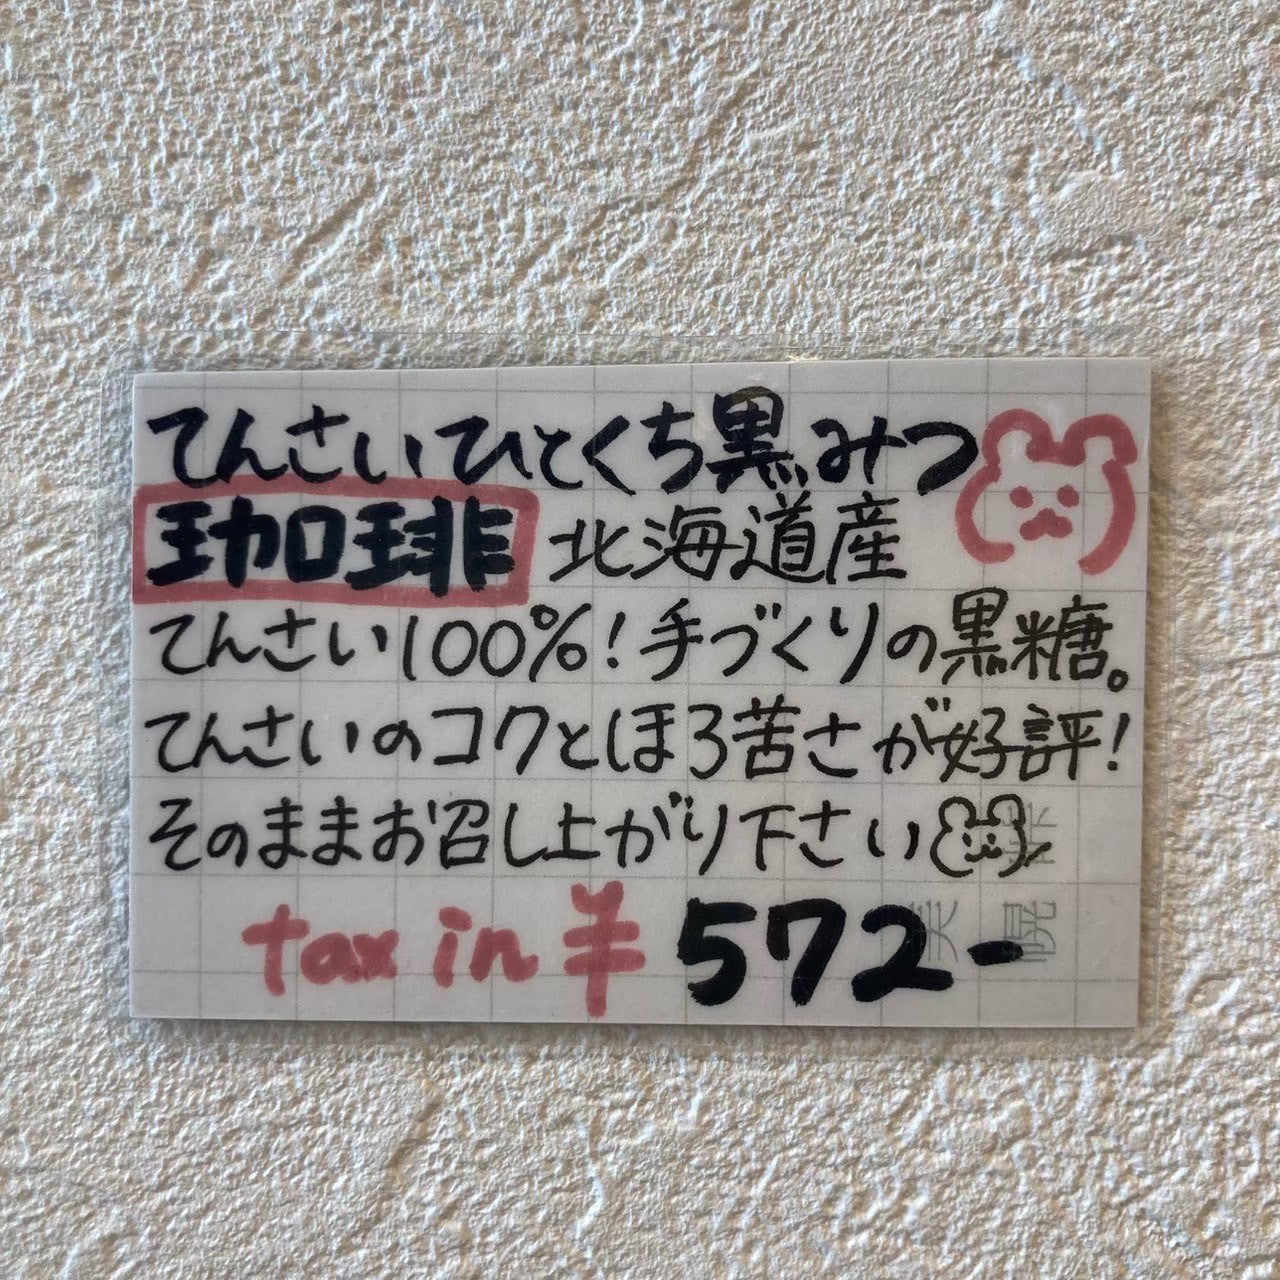 てんさいひとくち黒みつ
珈琲 北海道産
てんさい100%!手づくりの黒糖。
てんさいのコクとほろ苦さが好評!
そのままお召し上がり下さい
tax in ¥572-